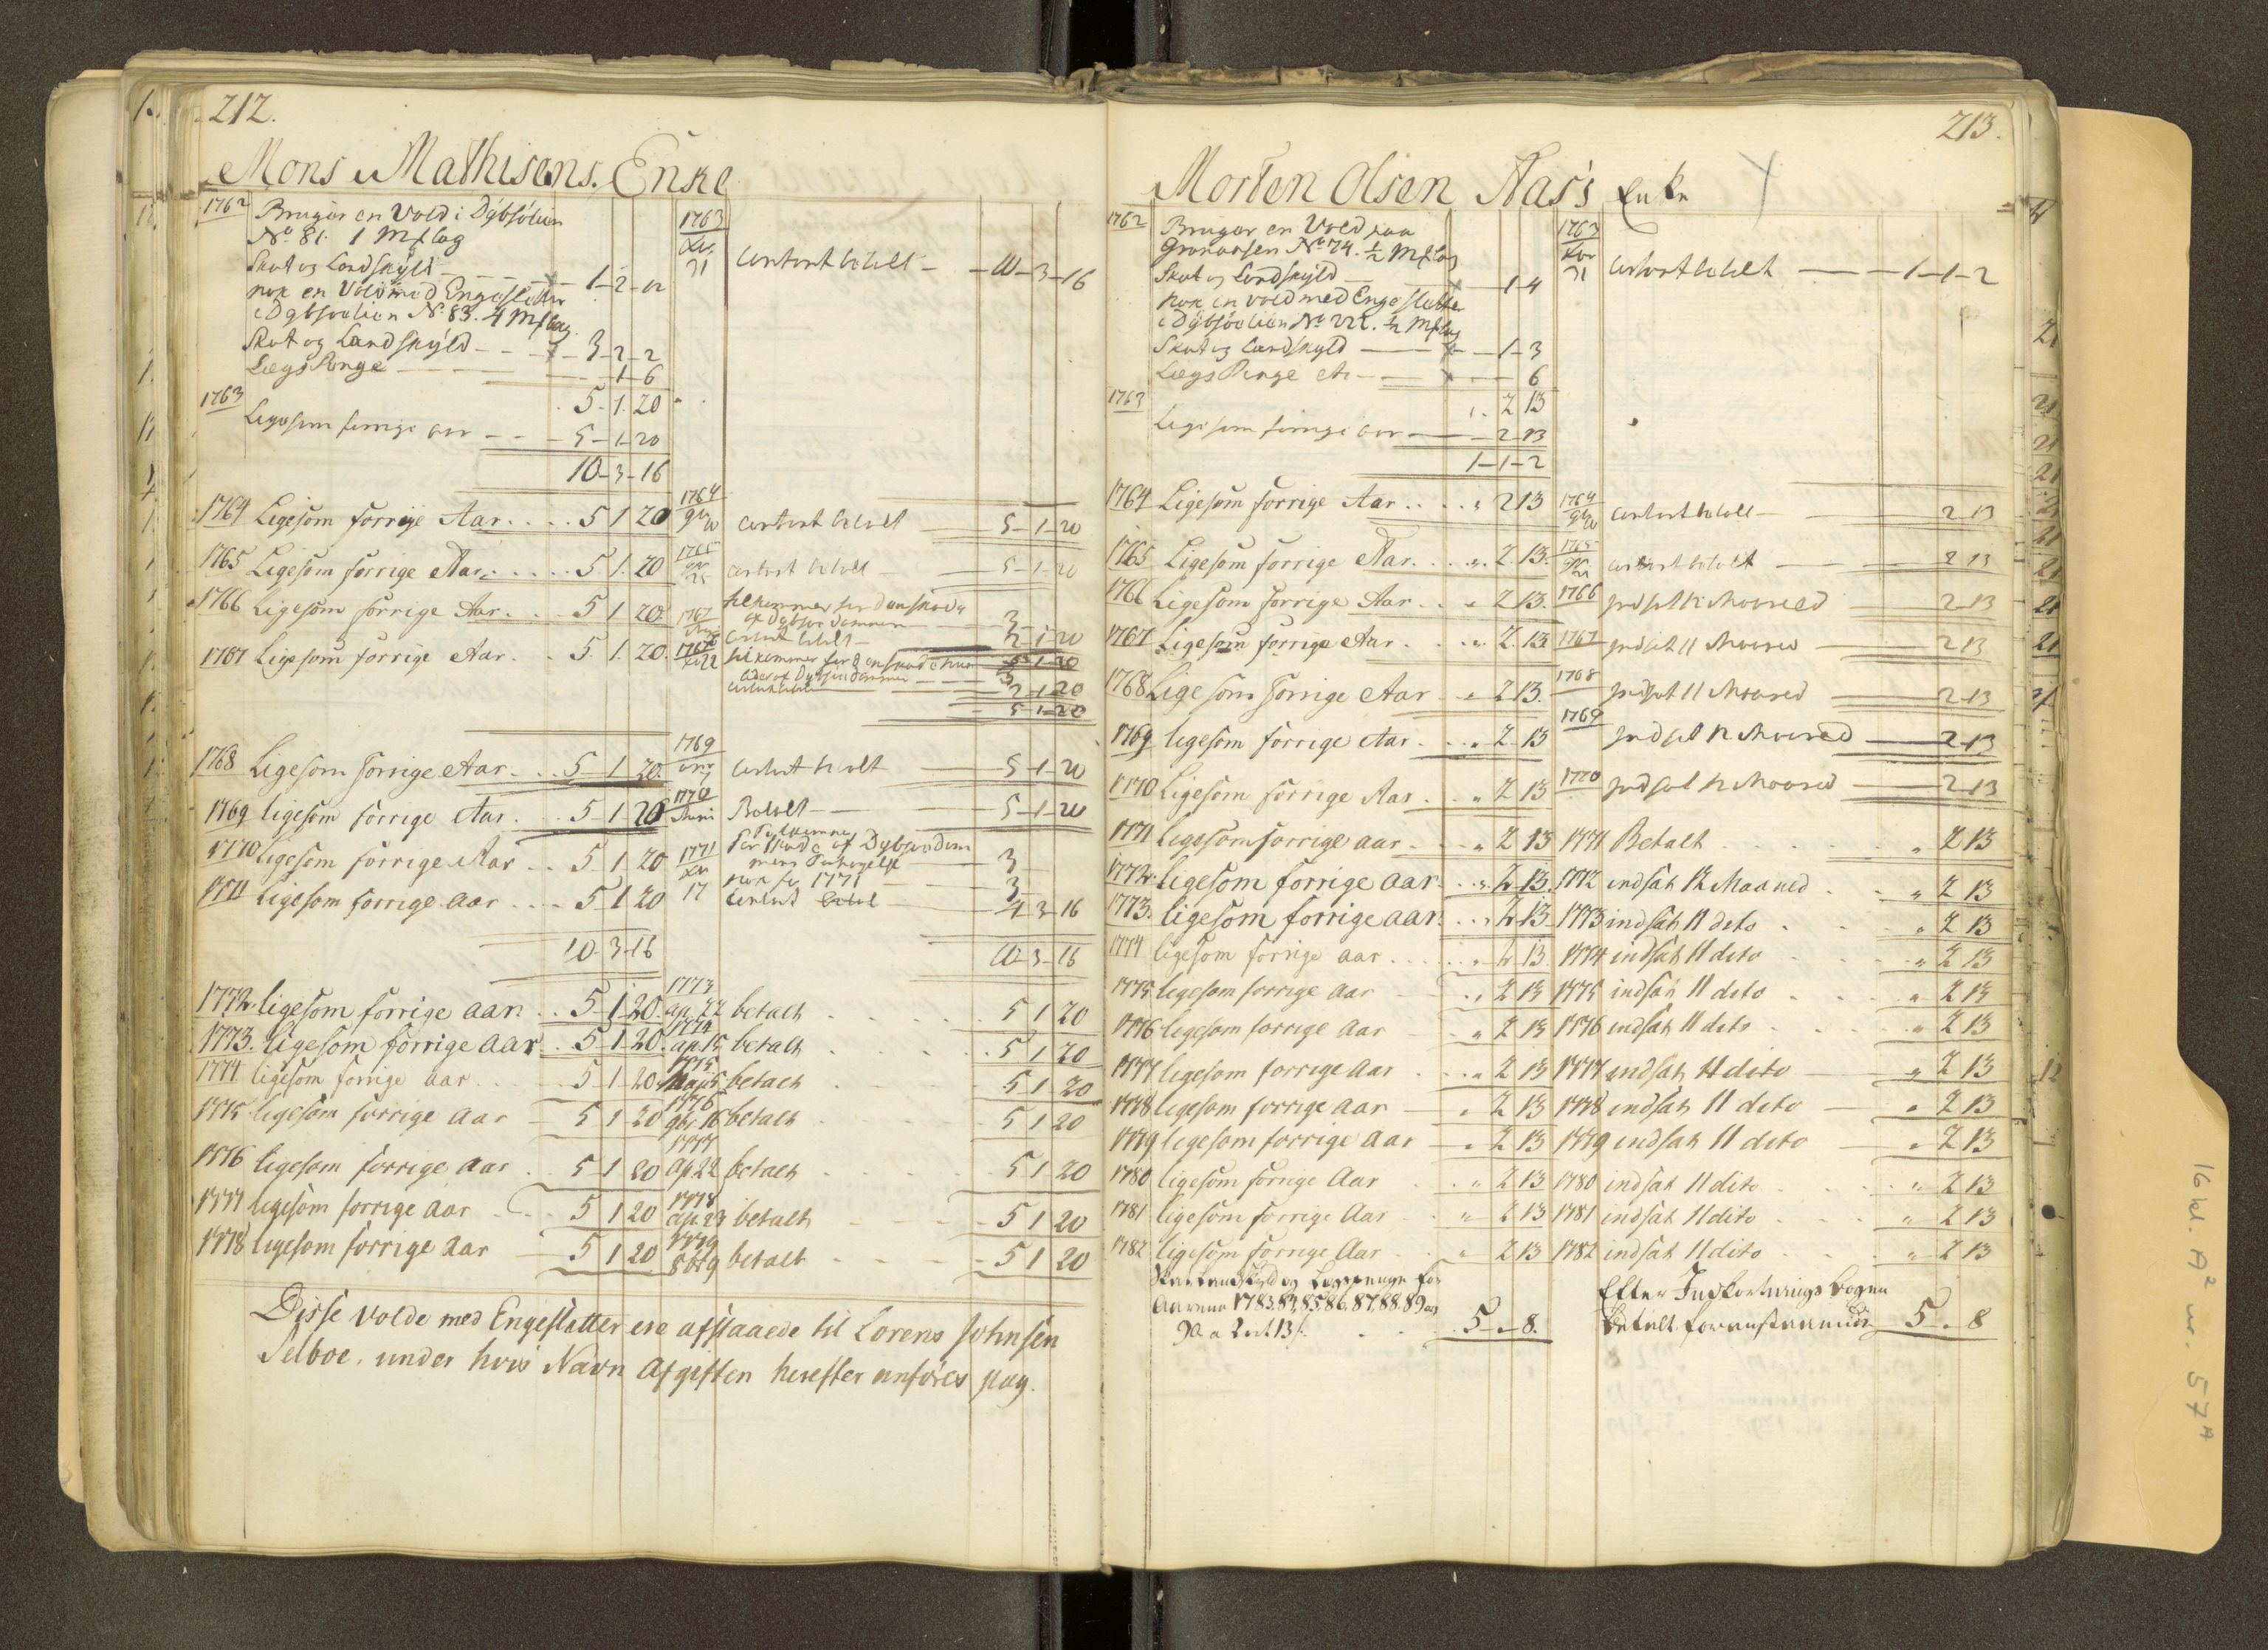 212.
Mons Mathisens Enke
1762 Bruger en Vold i Dybsölien
No. 81. 1 Mflag
Skat og Landskÿld - - - 1-2-12
nok en Vold med Engesletter
i Dybsoelien No. 83. 4 Mflag.
Skat og Landskÿld - - - 3-2-2
Lægs Penge - - - 1-6
5-1.20
1763
Ligesom forrige aar - - - 5-1-20
10-3-16
1764 Ligesom forrige Aar. . . . 5 1 20
1765 Ligesom forrige Aar. . . . . 5 1. 20
1766 Ligesom forrige Aar. . . 5 1 20.
1767 Ligesom forrige Aar. . . 5. 1. 20.
1768 Ligesom forrige Aar. . . 5-1-20.
1769 ligesom forrige Aar. . . 5-1-20
1770 ligesom forrige Aar . . 5 1 20
1771 Ligesom forrige aar . . . 5-1 20
10-3-16
1772. ligesom forrige aar. . . 5-1-20.
1773. ligesom forrige aar. . . 5-1-20.
1774 ligesom forrige aar . . . 5-1-20
1775 ligesom forrige aar 5 1 20
1776 ligesom forrige aar . . 5 1 20
1777 ligesom forrige aar . . . 5 1 20
1778 ligesom forrige aar 5 1 20
1763
Xbr
31 Contant betalt - 10-3-16
1764
9br
10 contant betalt 5-1-20
1765
contant betalt 5-1-20
1767
tilkommer for
af Dybsoe Dammen 3
contant betalt 2-1-20
5-1-20
tilkommer for
Dammen 3
contant betalt 2-1-20
5-1-20
1769
contant betalt 5-1-20
1770
Junii Betalt 5-1-20
1771
Xbr
17
Tilkommer
for Skade af Dybsoedam
mens 3
nok for 1771 3
Contant betal 4 3-16
10-3-16
1773
ap. 22 betalt . . . . . 5 1 20
1774
ap. 15 betalt . . . . . 5 1 20
1775
Maj 5 betalt 5 1 20
1776
9br. 16 betalt . . . 5 1 20
1777
Ap 22 betalt . . . 5 1 20
1778
ap. 23 betalt - 5 1 20
1779
8bt 9 betalt - 5 1 20
Disse Volde med Engesletter ere afstaaede til Lorens Johnsen
Selboe, under hvis Navn Afgiften herefter anföres pag.
213.
Morten Olsen Aas's Enke
1762 Bruger en Vold paa
Gronaasen No. 74. ½ Mflag
Skat og Landskyld 1 4
nok en vold med Engesletter
i Dÿbsöelien No 222. ½ Mflag
Skat og Landskyld 1-3
Lægs Penge 6
". 2 13
1763
Ligesom forrige aar 2-13
1-1-2
1764 Ligesom forrige Aar . . . " 2 13
1765 Ligesom forrige Aar. . . " 2 13.
1766 Ligesom forrige Aar . . " 2 13.
1767 Ligesom forrige Aar . . " 2 13
1768 Ligesom forrige Aar " 2 13.
1769 ligesom forrige Aar . . . " 2 13
1770 Ligesom forrige Aar . . " 2 13
1771 ligesom forrige aar . . . " 2 13
1772. ligesom forrige aar . . " 2 13.
1773. ligesom forrige aar. . . " 2 13
1774 ligesom forrige aar . . . " 2 13.
1775 ligesom forrige aar " 2 13
1776 ligesom forrige aar " 2 13
1777 ligesom forrige aar . " 2 13
1778 ligesom forrige aar " 2 13
1779 ligesom forrige aar " 2 13
1780 ligesom forrige Aar . " 2 13
1781 ligesom forrige Aar . " 2 13
1782 ligesom forrige Aar . " 2 13
Skat Landskyld og Lægspenge for
Aarene 1783, 84, 85, 86, 87, 88, 89 og
90 a 2 ort 13 s. . . 5 " 8.
1763
Xbr
31 Contant betalt 1-1-2
1764
9br
10 contant betalt - 2 13
1765
contant betalt 2 13
1766 indsat 12 Maaned 2-13
1767 indsat 11 Maaned 2 13
1768 indsat 11 Maaned 2-13
1769
indsat 12 Maaned 2-13
1770 indsat 12 Maaned 2-13
1771 Betalt . . . . . " 2 13
1772 indsat 12 Maaned . . " 2 13
1773 indsat 11 dito . . " 2 13
1774 indsat 11 dito . . " 2 13
1775 indsat 11 dito . . " 2 13
1776 indsat 11 dito . . " 2 13
1777 indsat 11 dito " 2 13
1778 indsat 11 dito " 2 13
1779 indsat 11 dito " 2 13
1780 indsat 11 dito . . " 2 13
1781 indsat 11 dito . . " 2 13
1782 indsat 11 dito . . " 2 13
Efter Indkortnings bogen
betalt foranstaaende 5 " 8
16 kl. A² nr. 57 a